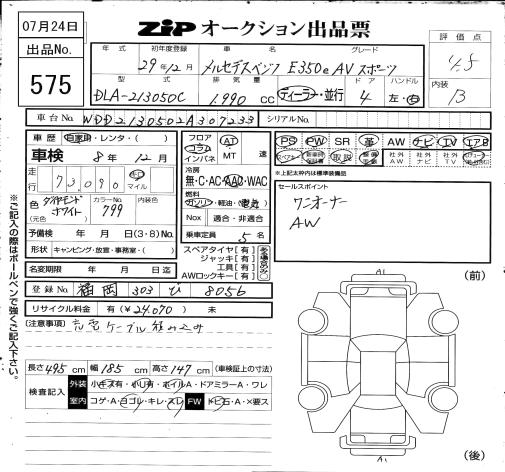 07月24日
出品No.
575
ZIP オークション出品票
評価点
4.5
内装
B
年式 初年度登録 車名 グレード
29年12月 メルセデスベンツ E350e AV スポーツ
型式 排気量 ドア ハンドル
DLA-213050C 1,990 cc ディーラー・並行 4 左・右
車台No. WDD2130502A307233 シリアルNo.
車歴 自家用・レンタ・( )
車検 8年12月
走行 73,090 キロ マイル
色 ダイヤモンドホワイト (元色) カラーNo. 799 内装色
予備検 年 月 日(3・8)No.
形状 キャンピング・放宣・事務室・( )
名変期限 年 月 日迄
フロア コラム インパネ AT MT 速
冷房 無・C・AC・AAC・WAC
燃料 ガソリン・軽油・電気
Nox 適合・非適合
乗車定員 5名
スペアタイヤ[有]
ジャッキ[有]
工具[有]
AWロックキー[有]
PS PW SR 革 AW ナビ TV エアB
スペアキー 取説 社外AW 社外ナビ
※上記太枠内は標準装備品
セールスポイント
ワンオーナー
AW
登録No. 福岡 303 び 8056
リサイクル料金 有(¥24,070) 未
(注意事項) 充電ケーブル積み込み
長さ 495 cm 幅 185 cm 高さ 147 cm (車検証上の寸法)
検査記入 外装 小キズ有・小凹有・ホイルA・ドアミラーA・ワレ
室内 コゲ・A・ヨゴレ・キレ・スレ FW トビ石・A・×要ス
※ご記入の際はボールペンで強くご記入下さい。
A1
(前)
A1
(後)